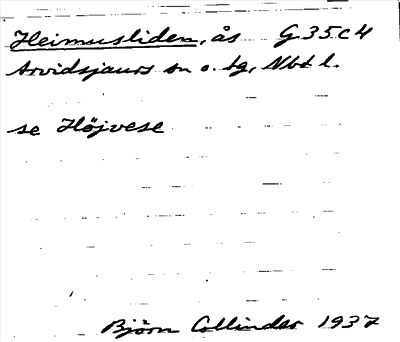 Heimusliden, ås G 35 c 4
Arvidsjaurs sn o. tg, Nbt l.
se Højvese
Björn Collinder 1937